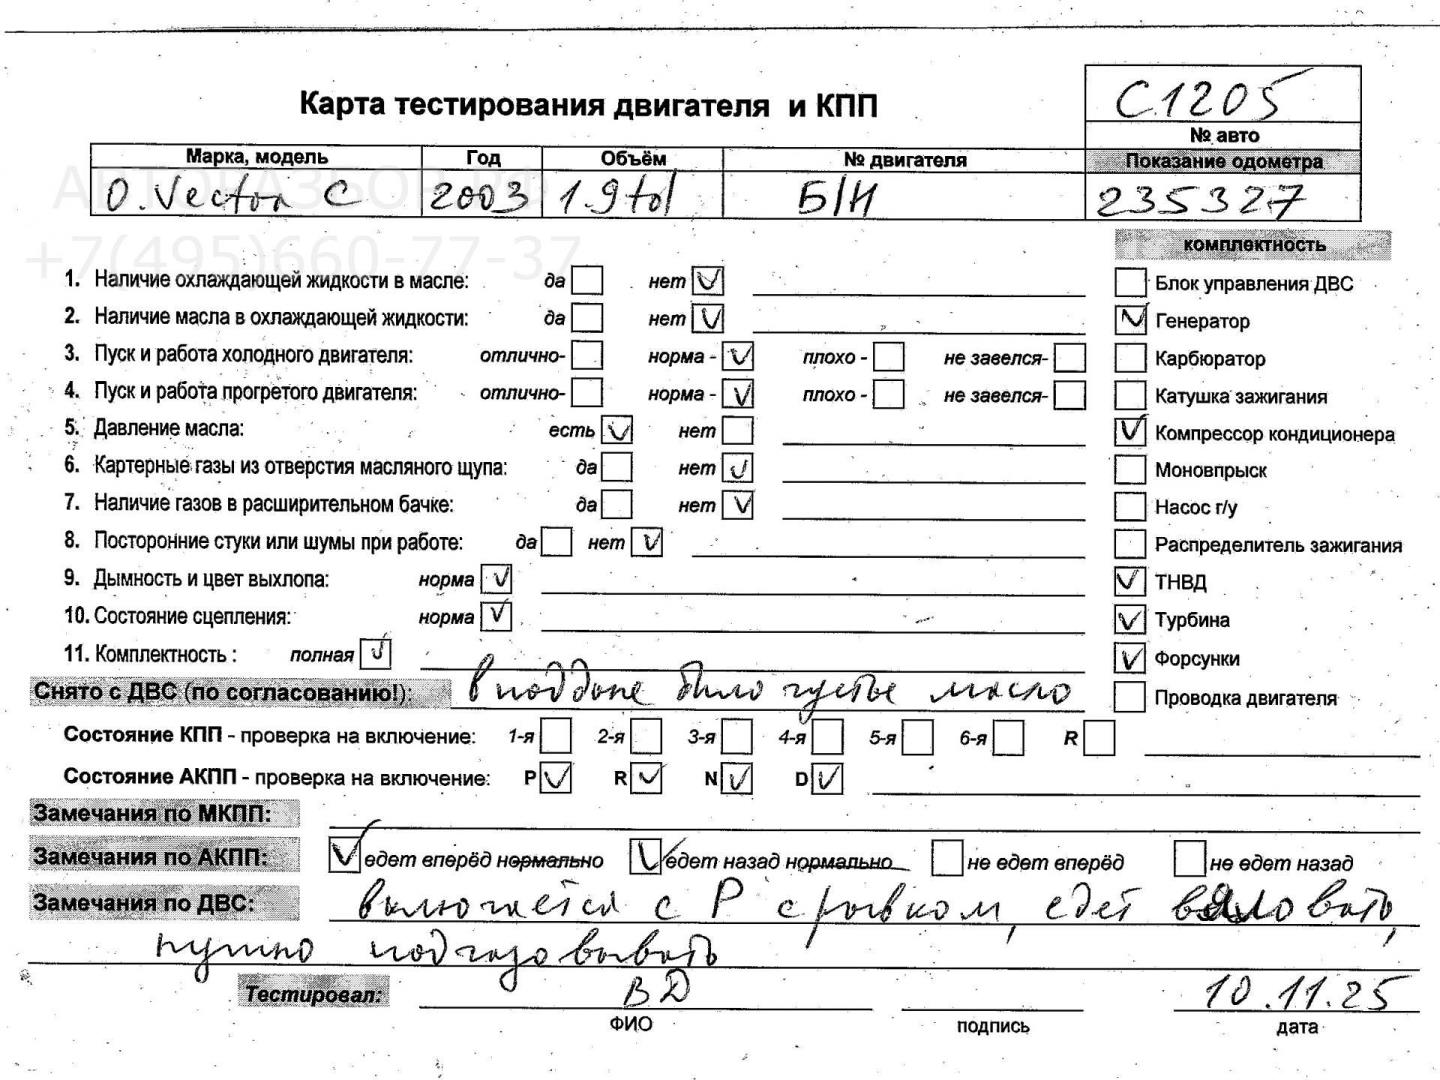 Карта тестирования двигателя и КПП
С1205
№ авто
Марка, модель Год Объём № двигателя Показание одометра
O. Vectra C 2003 1.9tdi Б/Н 235327
АВТОРАЗБОР.РФ
+7(495)660-77-37
комплектность
1. Наличие охлаждающей жидкости в масле: да нет Блок управления ДВС
2. Наличие масла в охлаждающей жидкости: да нет Генератор
3. Пуск и работа холодного двигателя: отлично- норма - плохо - не завелся- Карбюратор
4. Пуск и работа прогретого двигателя: отлично- норма - плохо - не завелся- Катушка зажигания
5. Давление масла: есть нет Компрессор кондиционера
6. Картерные газы из отверстия масляного щупа: да нет Моновпрыск
7. Наличие газов в расширительном бачке: да нет Насос г/у
8. Посторонние стуки или шумы при работе: да нет Распределитель зажигания
9. Дымность и цвет выхлопа: норма ТНВД
10. Состояние сцепления: норма Турбина
11. Комплектность : полная Форсунки
Снято с ДВС (по согласованию!): в поддоне было густое масло Проводка двигателя
Состояние КПП - проверка на включение: 1-я 2-я 3-я 4-я 5-я 6-я R
Состояние АКПП - проверка на включение: P R N D
Замечания по МКПП:
Замечания по АКПП: едет вперёд нормально едет назад нормально не едет вперёд не едет назад
Замечания по ДВС: включается с Р с рывком, едет вяловато,
нужно подгазовывать
Тестировал: ВД 10.11.25
ФИО подпись дата